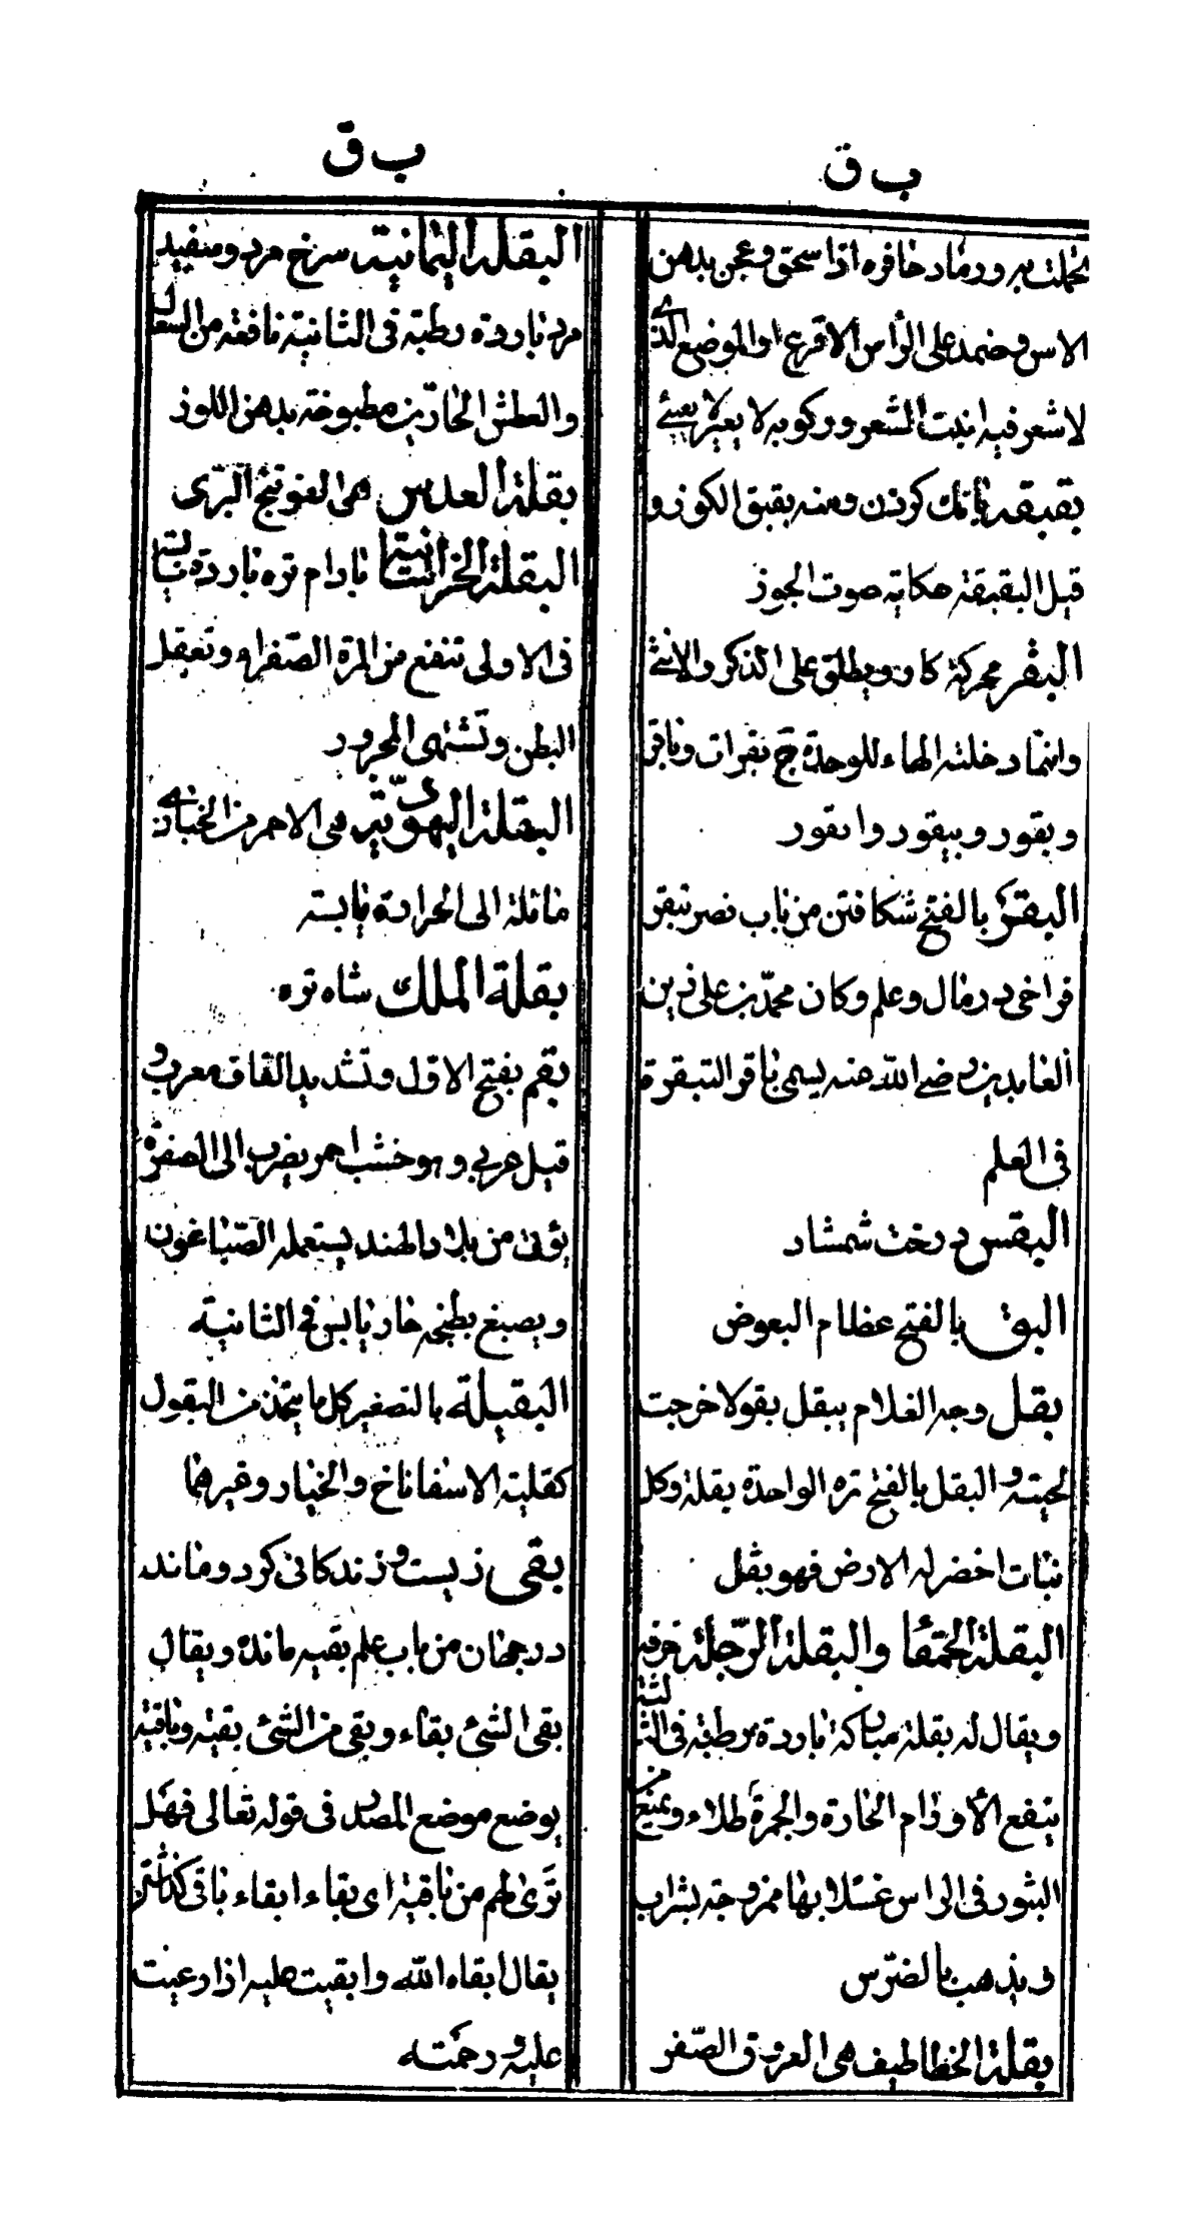 ب ق
حملت به ورماد حافره اذا سحق وعجن بدهن
الاس وضمد على الراس الاقرع او الموضع الذى
لا شعر فيه انبت الشعر وركوبه لا يعيى
بقبقه بانك كردن ومنه بقبق الكوز و
قيل البقبقة حكاية صوت الجوز
البقر محركة كاو ويطلق على الذكر والانثى
وانما دخلته الهاء للوحدة ج بقرات وباقر
وبقور وبيقور وابقور
البقر بالفتح شكافتن من باب نصر تبقر
فراخى در مال وعلم وكان محمد بن على زين
العابدين رضى الله عنه يسمى باقر التبقره
فى العلم
البقس درخت شمشاد
البق بالفتح عظام البعوض
بقل وجه الغلام يبقل بقولا خرجت
لحيته والبقل بالفتح تره الواحدة بقلة وكل
نبات اخضر له الارض فهو بقل
البقلة الحمقا والبقلة الرجلة خرفه
ويقال له بقلة مباركة باردة رطبة فى
ينفع الأورام الحارة والجمرة طلاء ويمنع من
البثور فى الراس غسلا بها ممزوجة بشراب
ويذهب بالضرس
بقلة الخطاطيف هى العروق الصفر
ب ق
البقلة اليمانية سرخ مرد وسفيد
مرد باردة رطبة فى الثانية نافعه من السعال
والعطش الحارين مطبوخة بدهن اللوز
بقلة العدس هى الفوتنج البرى
البقلة الخراسانية بادام تره باردة يابسة
فى الاولى تنفع من المرة الصفراء وتعقل
البطن وتشهى المحرور
البقلة اليهودية هى الاحمر من الخبازى
مائلة الى الحرارة يابسة
بقلة الملك شاه تره
بقم بفتح الاول وتشديد القاف معروف
قيل عربى وهو خشب احمر يضرب الى الصفرة
يؤتى من بلاد الهند يستعمله الصباغون
ويصبغ بطبخه حار يابس فى الثانية
البقيلة بالتصغير كل ما يتخذ من البقول
كقلية الاسفاناخ والخيار وغيرهما
بقى زيست وزندكانى كرد وماند
در جهان من باب علم بقيه مانده ويقال
بقى الشئ بقاء وبقى من الشئ بقية وباقية
يوضع موضع المصدر فى قوله تعالى فهل
ترى لهم من باقية اى بقاء ابقاء باقى كذاشتن
يقال ابقاه الله وابقيت عليه اذا رعيت
عليه ورحمته